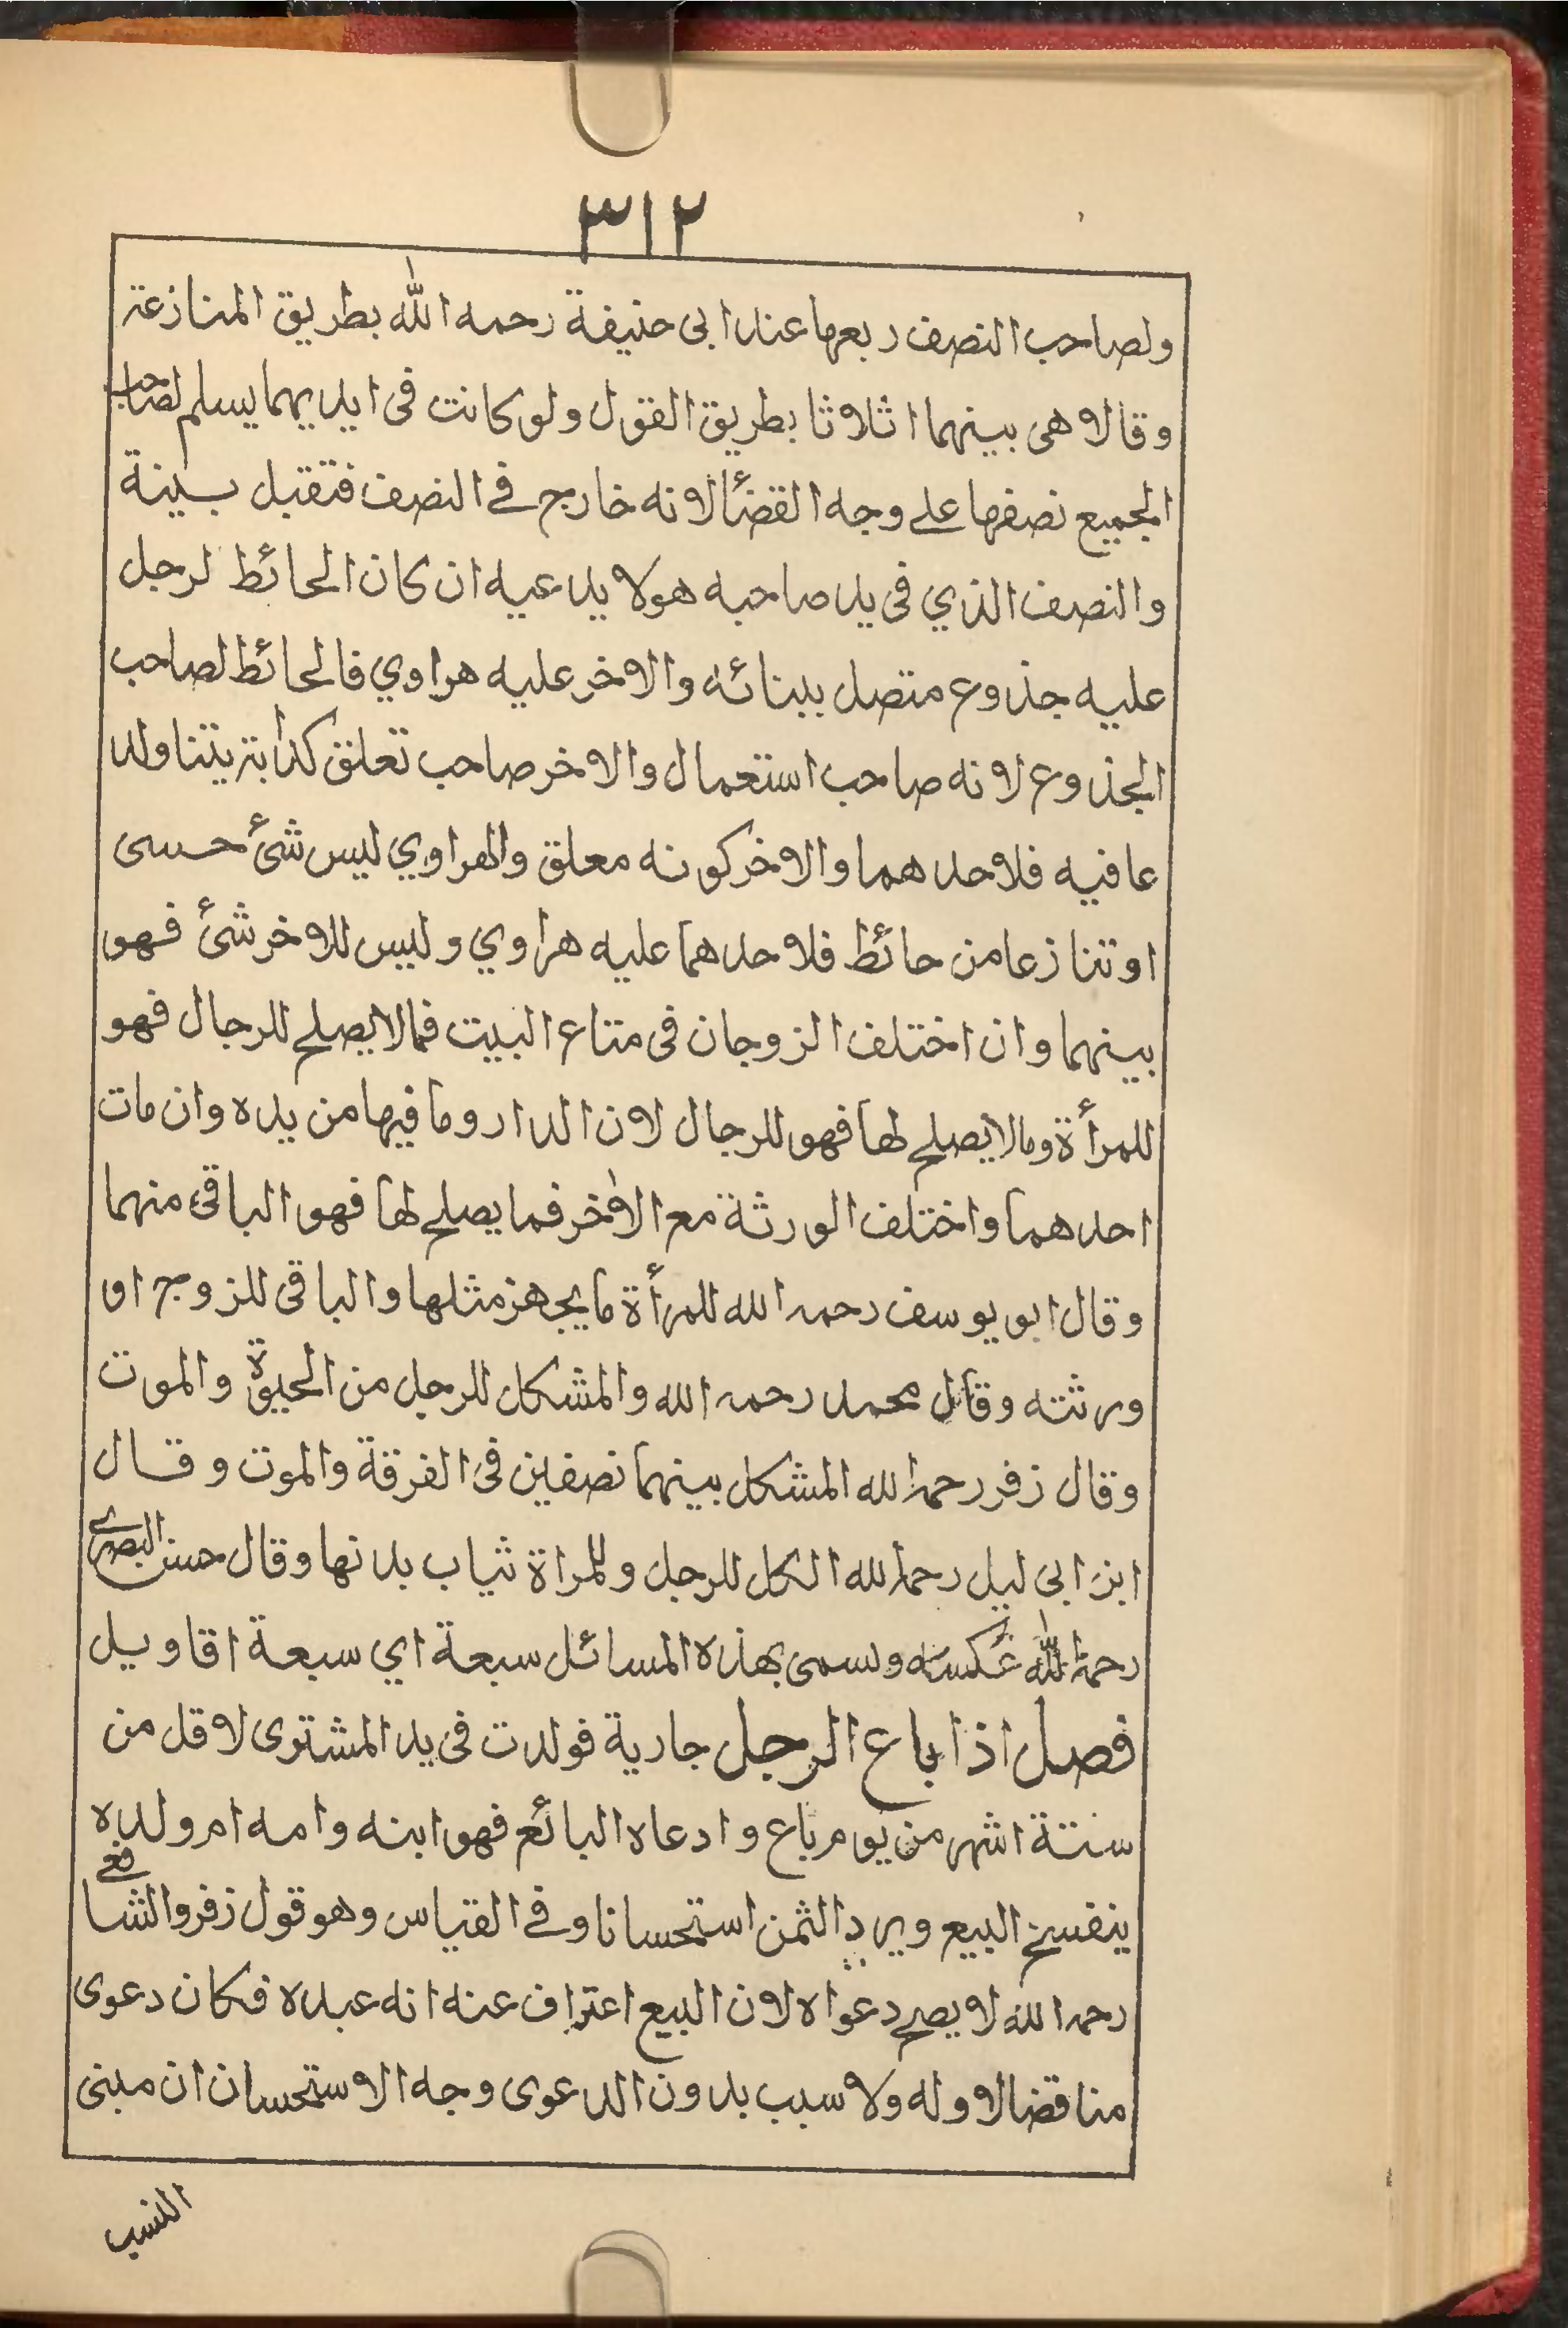 ٣١٢
ولصاحب النصف ربعها عند ابى حنيفة رحمه الله بطريق المنازعة
وقالا هى بينهما اثلاثا بطريق القول ولو كانت فى ايديهما يسلم لصاحب
الجميع نصفها على وجه القضأ لانه خارج فى النصف فتقبل بينة
والنصف الذي فى يد صاحبه هو لا يدعيه ان كان الحائط لرجل
عليه جذوع متصل ببنائه والاخر عليه هراوي فالحائط لصاحب
الجذوع لانه صاحب استعمال والاخر صاحب تعلق كدابة يتناولد
عافيه فلاحدهما والاخر كونه معلق والهراوي ليس شئ حسى
او تنازعا من حائط فلاحدهما عليه هراوي وليس للاخر شئ فهو
بينهما وان اختلف الزوجان فى متاع البيت فمالا يصلح للرجال فهو
للمرأة ومالا يصلح لها فهو للرجال لان الدار وما فيها من يده وان مات
احدهما واختلف الورثة مع الاخر فما يصلح لها فهو الباقى منهما
وقال ابو يوسف رحمه الله للمرأة ما يجهز مثلها والباقى للزوج او
ورثته وقال محمد رحمه الله والمشكل للرجل من الحيوة والموت
وقال زفر رحمه الله المشكل بينهما نصفين فى الفرقة والموت وقال
ابن ابى ليل رحمه الله الكل للرجل وللمراة ثياب بدنها وقال حسن البصرى
رحمه الله عكسه ويسمى بهذه المسائل سبعة اي سبعة اقاويل
فصل اذا باع الرجل جارية فولدت فى يد المشترى لاقل من
ستة اشهر من يوم باع وادعاه البائع فهو ابنه وامه ام ولده
ينفسخ البيع ويرد الثمن استحسانا وفى القياس وهو قول زفر والشافعى
رحمه الله لا يصح دعواه لان البيع اعتراف عنه انه عبده فكان دعوى
مناقضا لاوله ولا سبب بدون الدعوى وجه الاستحسان ان مبنى
النسب